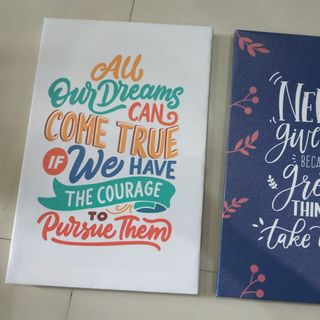 All
Our Dreams
CAN
COME TRUE
IF We HAVE
THE COURAGE
TO
Pursue Them
give
great
take